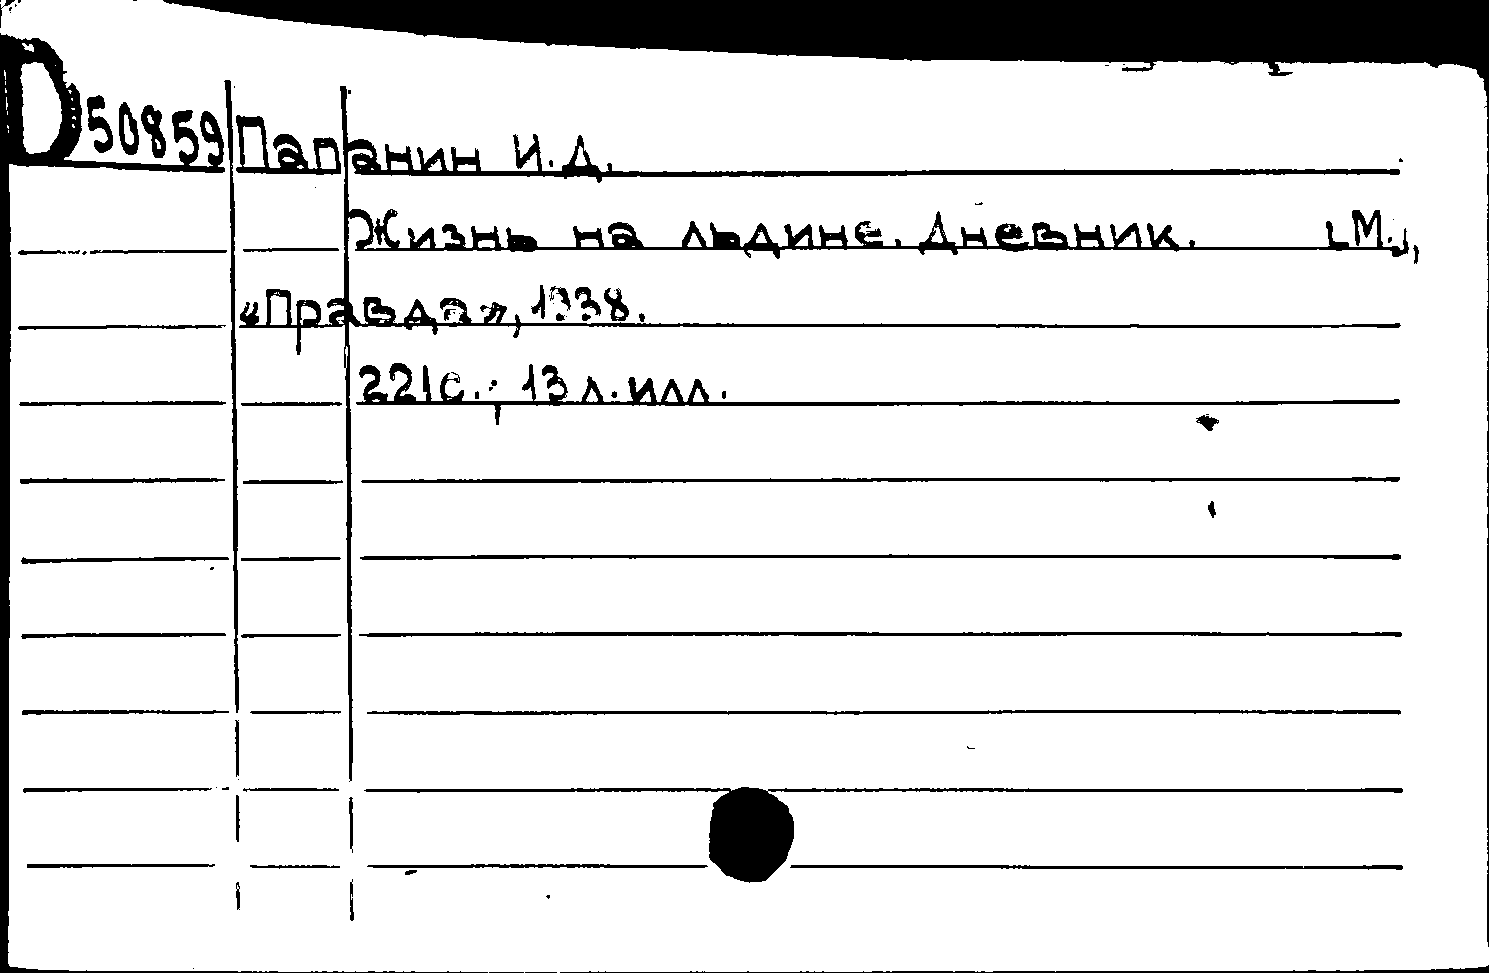 D 50859 Папанин И.Д.
Жизнь на льдине. Дневник. [М.],
«Правда», 1938.
221 с.; 13 л. илл.